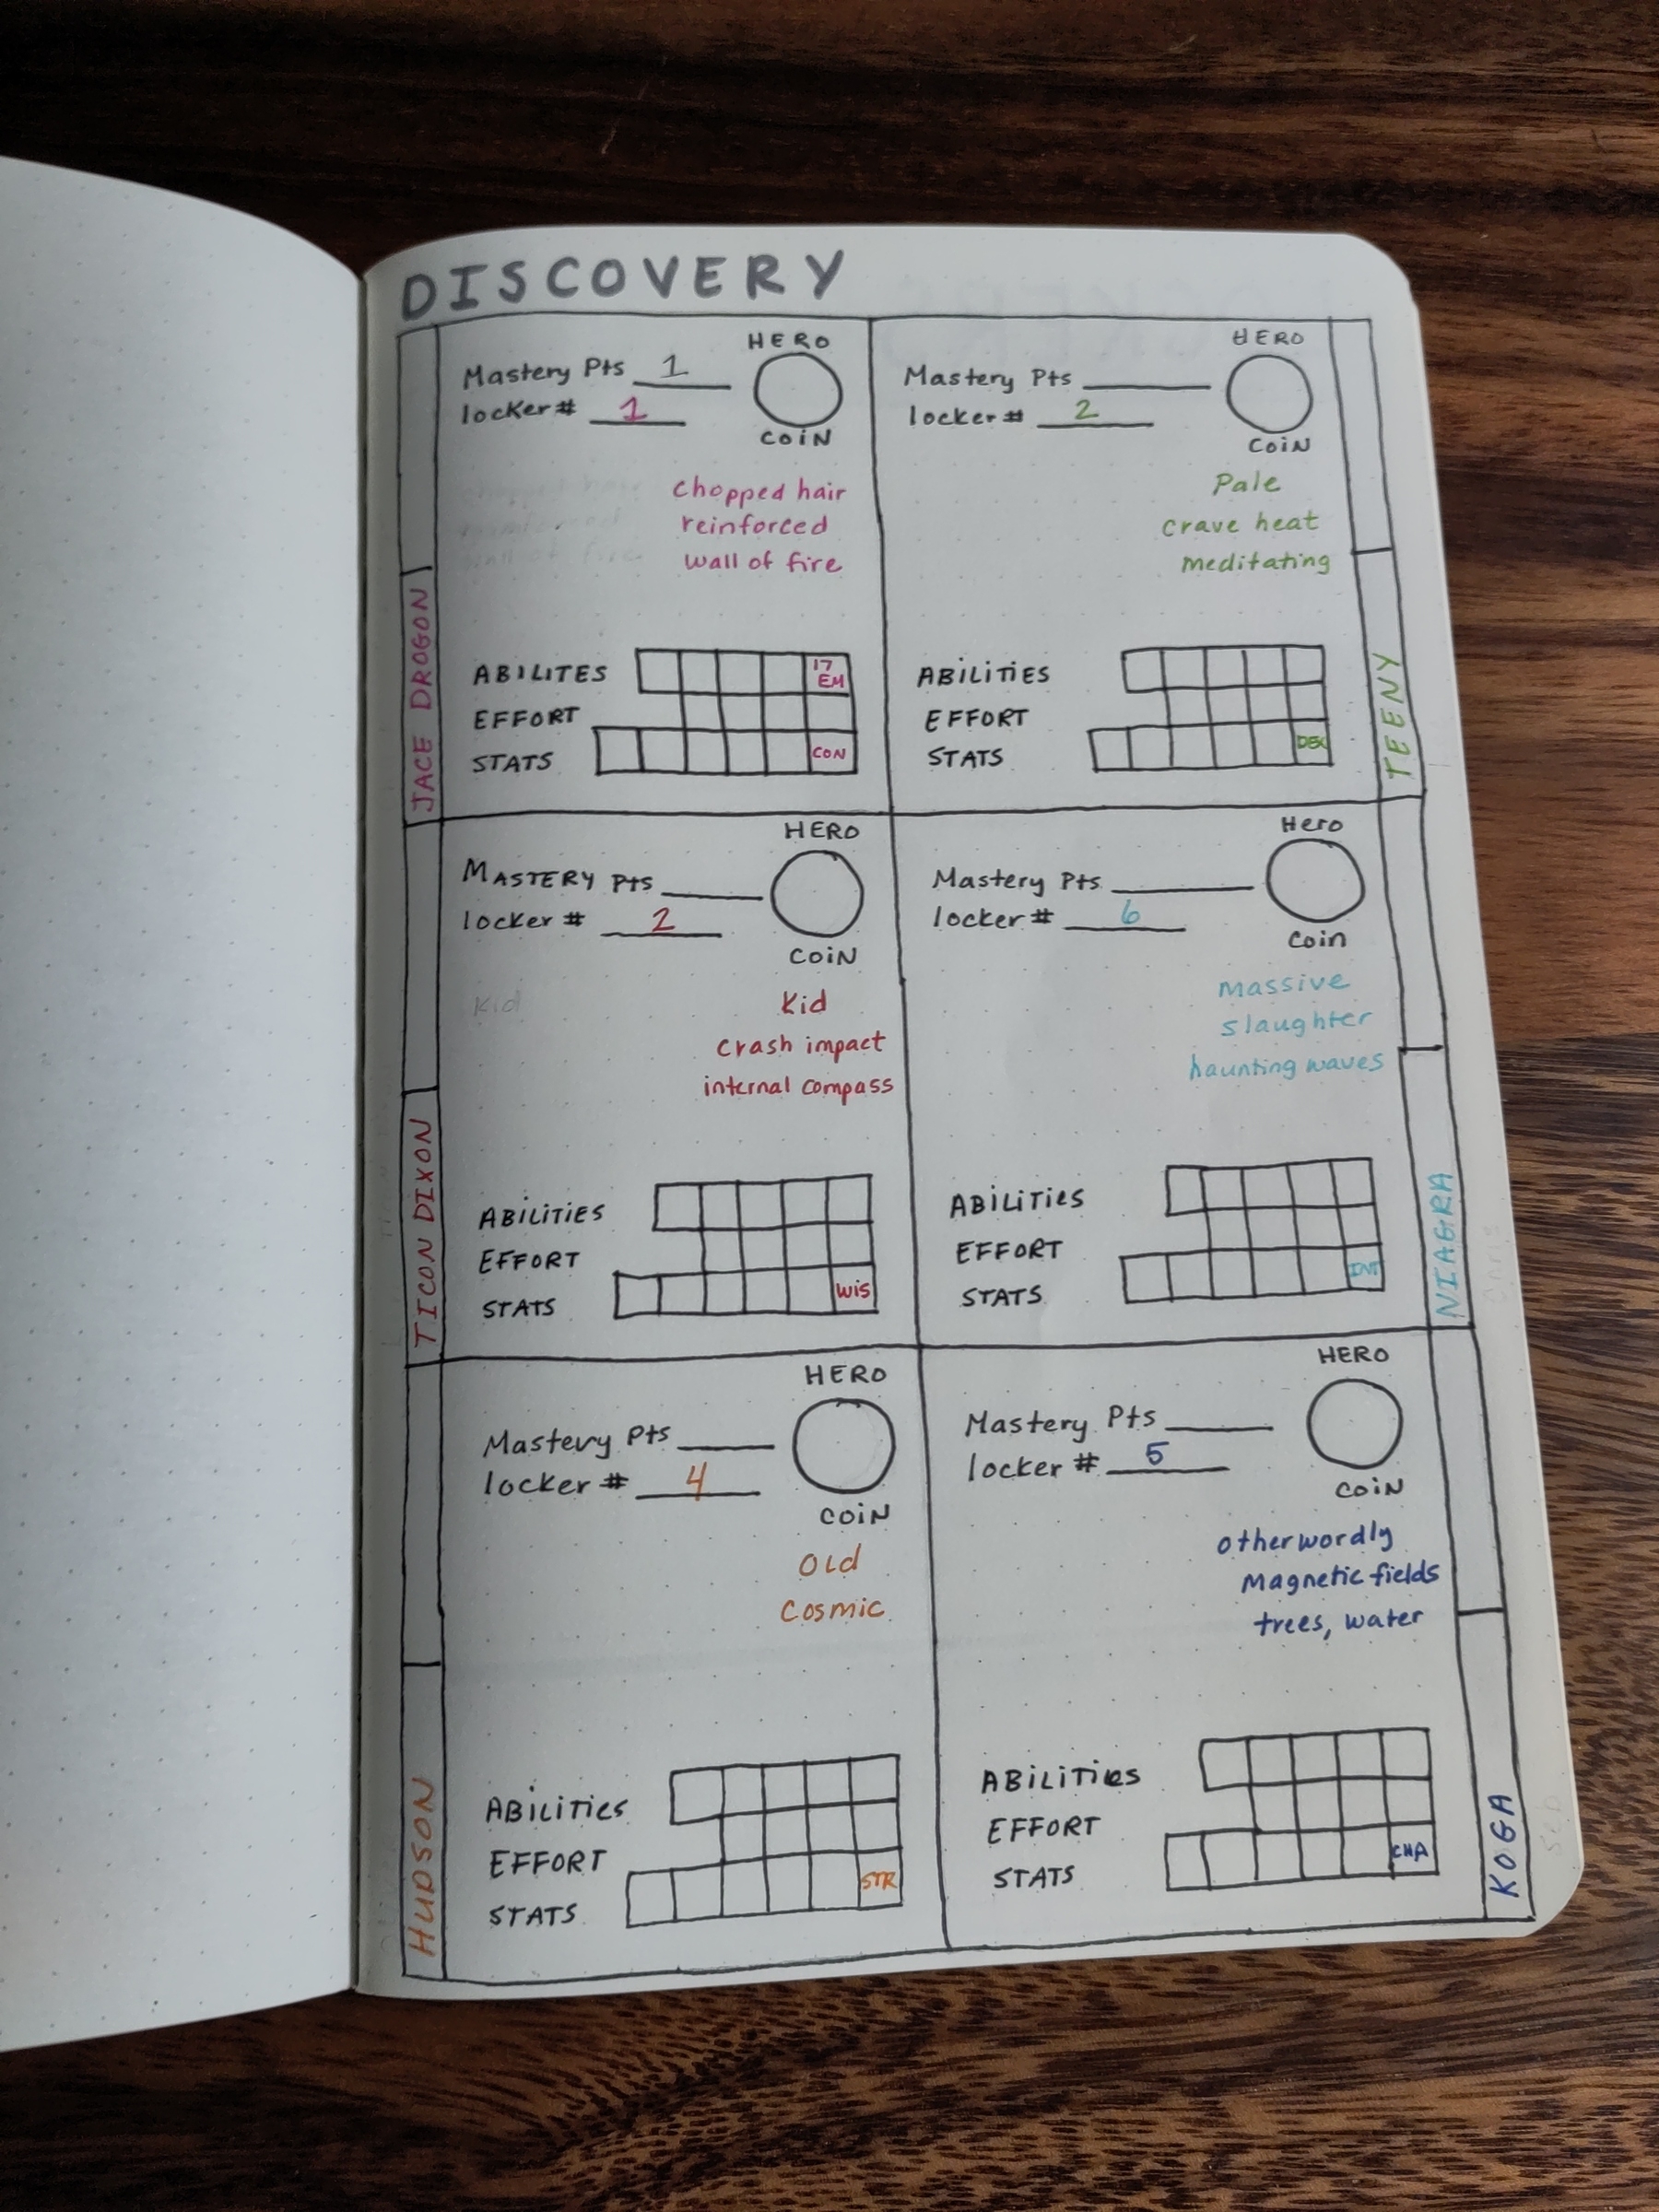 DISCOVERY
HERO
Mastery Pts 1
locker # 1
COiN
Chopped hair
reinforced
wall of fire
ABILITES
17
EM
EFFORT
STATS
CON
JACE DROGON
HERO
Mastery Pts
locker # 2
COiN
Pale
crave heat
meditating
ABiLiTiES
EFFORT
STATS
TEENY
HERO
MASTERY Pts
locker # 2
COiN
Kid
Kid
crash impact
internal compass
ABiLiTiES
EFFORT
STATS
WIS
TICON DIXON
Hero
Mastery Pts
locker # 6
Coin
Massive
slaughter
haunting waves
ABiLiTiES
EFFORT
STATS
INT
NIAGRA
HERO
Mastery Pts
locker # 4
COiN
OLd
Cosmic
ABiLiTies
EFFORT
STATS
STR
HUDSON
HERO
Mastery Pts
locker # 5
COiN
otherwordly
Magnetic fields
trees, water
ABiLiTiES
EFFORT
STATS
CHA
KOGA